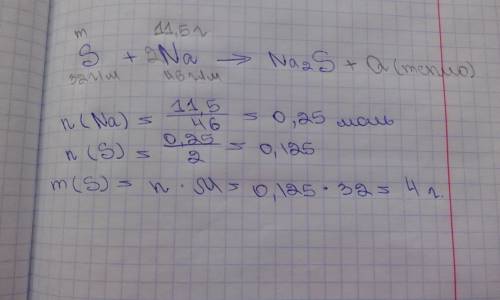 m 11,5 г
S + 2Na → Na₂S + Q (тепло)
32 г/м 46 г/м
n(Na) = 11,5/46 = 0,25 моль
n(S) = 0,25/2 = 0,125
m(S) = n · M = 0,125 · 32 = 4 г.